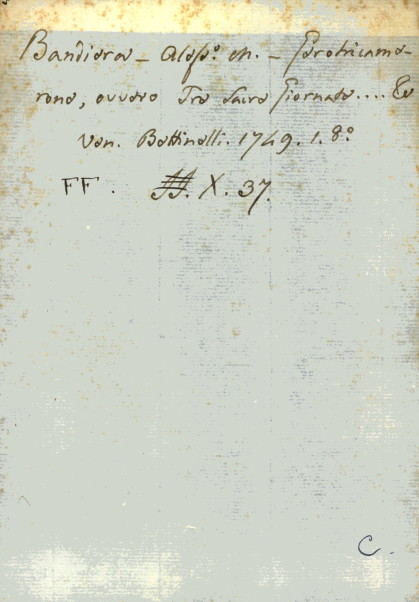 Bandiera - Aless.º M. - Gerotricame-
rone, ovvero Tre Sacre Giornate....
Ven. Bettinelli. 1749. 1. 8.º
FF. X. 37.
C.